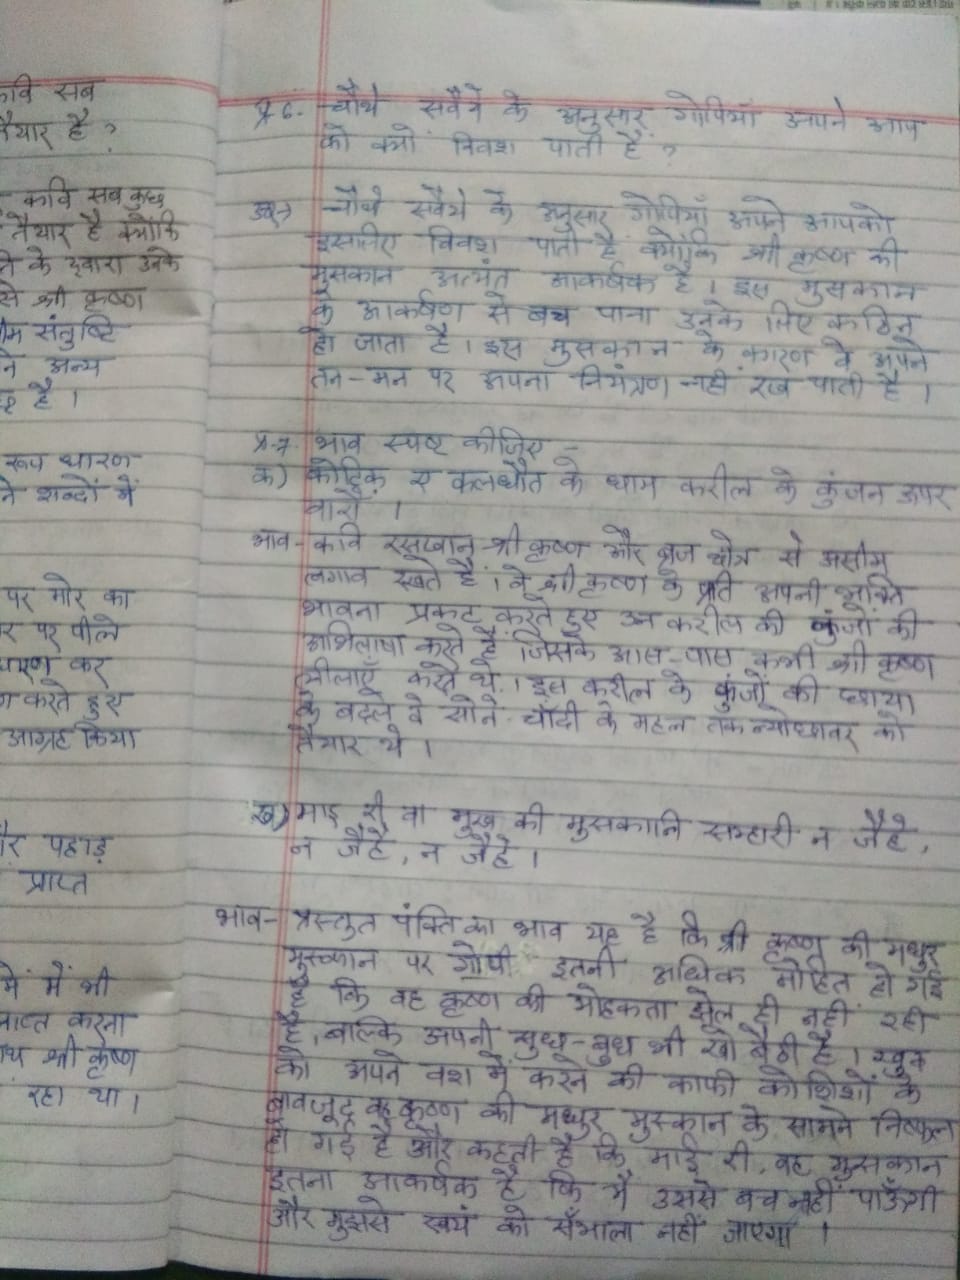 कवि सब
तैयार है ?
- कवि सब कुछ
तैयार है क्योंकि
ने के द्वारा उनके
से श्री कृष्ण
संतुष्टि
ने अन्य
है ।
रूप धारण
ने शब्दों में
पर मोर का
र पर पीले
धारण कर
ण करते हुए
आग्रह किया
और पहाड़
प्राप्त
में में भी
प्राप्त करना
साथ श्री कृष्ण
रहा था ।
प्र.6. चौथे सवैये के अनुसार गोपियाँ अपने आप
को क्यों विवश पाती हैं ?
उत्तर→ चौथे सवैये के अनुसार गोपियाँ अपने आपको
इसलिए विवश पाती है क्योंकि श्री कृष्ण की
मुसकान अत्यंत आकर्षक है । इस मुसकान
के आकर्षण से बच पाना उनके लिए कठिन
हो जाता है । इस मुसकान के कारण वे अपने
तन-मन पर अपना नियंत्रण नहीं रख पाती है ।
प्र.7. भाव स्पष्ट कीजिए -
क) कोटिक ए कलधौत के धाम करील के कुंजन ऊपर
वारौं ।
भाव- कवि रसखान श्री कृष्ण और ब्रज क्षेत्र से असीम
लगाव रखते हैं । वे श्री कृष्ण के प्रति अपनी भक्ति
भावना प्रकट करते हुए उन करील की कुंजों की
अभिलाषा करते हैं जिसके आस-पास कभी श्री कृष्ण
लीलाएँ करते थे । इस करील के कुंजों की छाया
के बदले वे सोने-चाँदी के महल तक न्योछावर को
तैयार थे ।
ख) माइ री वा मुख की मुसकानि सम्हारी न जैहै,
न जैहै, न जैहै ।
भाव- प्रस्तुत पंक्ति का भाव यह है कि श्री कृष्ण की मधुर
मुस्कान पर गोपी इतनी अधिक मोहित हो गई
है कि वह कृष्ण की मोहकता झेल ही नहीं रही
है, बल्कि अपनी सुध-बुध भी खो बैठी है । खुद
को अपने वश में करने की काफी कोशिशों के
बावजूद वह कृष्ण की मधुर मुस्कान के सामने निष्फल
हो गई है और कहती है कि माई री, वह मुसकान
इतना आकर्षक है कि मैं उससे बच नहीं पाऊँगी
और मुझसे स्वयं को सँभाला नहीं जाएगा ।